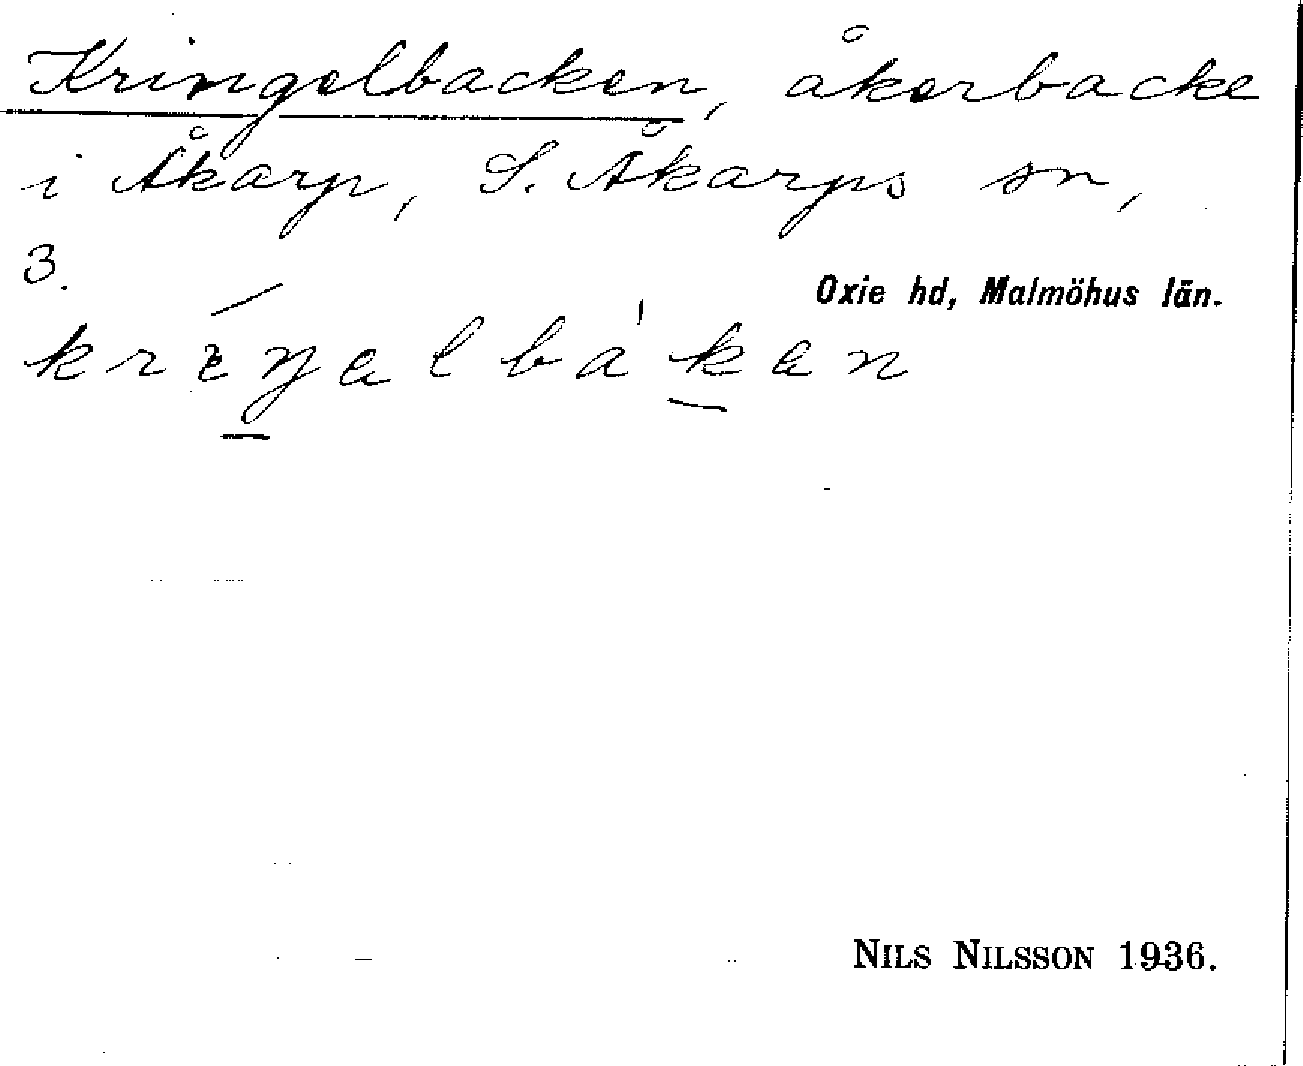 Kringelbacken, åkerbacke
i Åkarp, S. Åkarps sn,
3.
Oxie hd, Malmöhus län.
kríŋəlbákən
NILS NILSSON 1936.